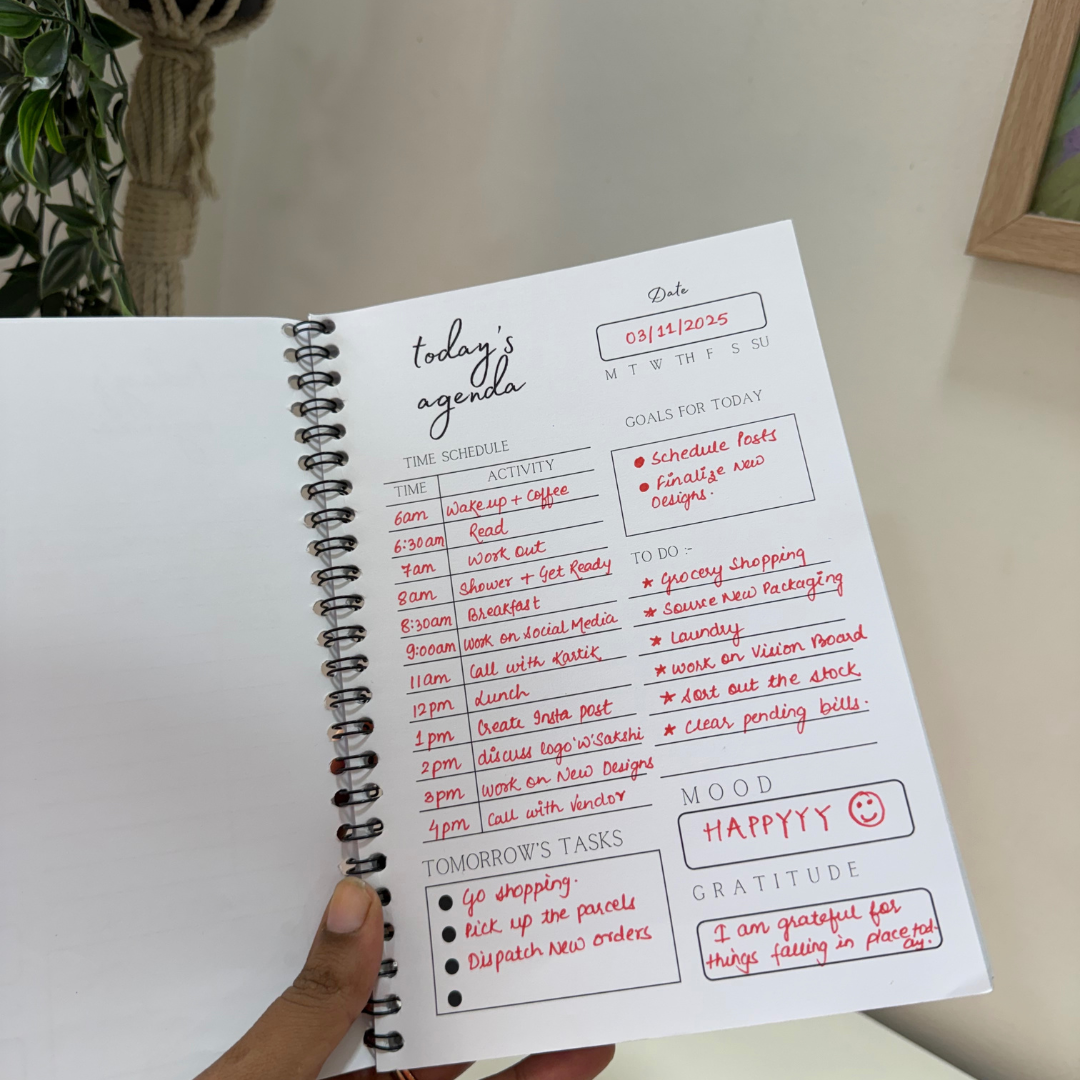 today's
agenda
Date
03/11/2025
M T W TH F S SU
TIME SCHEDULE
TIME ACTIVITY
6am Wake up + Coffee
6:30am Read
7am Work out
8am Shower + Get Ready
8:30am Breakfast
9:00am Work on Social Media
11am Call with Kartik
12pm Lunch
1pm Create Insta post
2pm discuss logo 'w' Sakshi
3pm Work on New Designs
4pm Call with Vendor
GOALS FOR TODAY
● Schedule Posts
● Finalize New
Designs.
TO DO :-
★ Grocery Shopping
★ Source New Packaging
★ Laundry
★ Work on Vision Board
★ Sort out the stock
★ Clear pending bills.
TOMORROW'S TASKS
● Go shopping.
● Pick up the parcels
● Dispatch New Orders
●
MOOD
HAPPYYY ☺
GRATITUDE
I am grateful for
things falling in place tod-
ay.